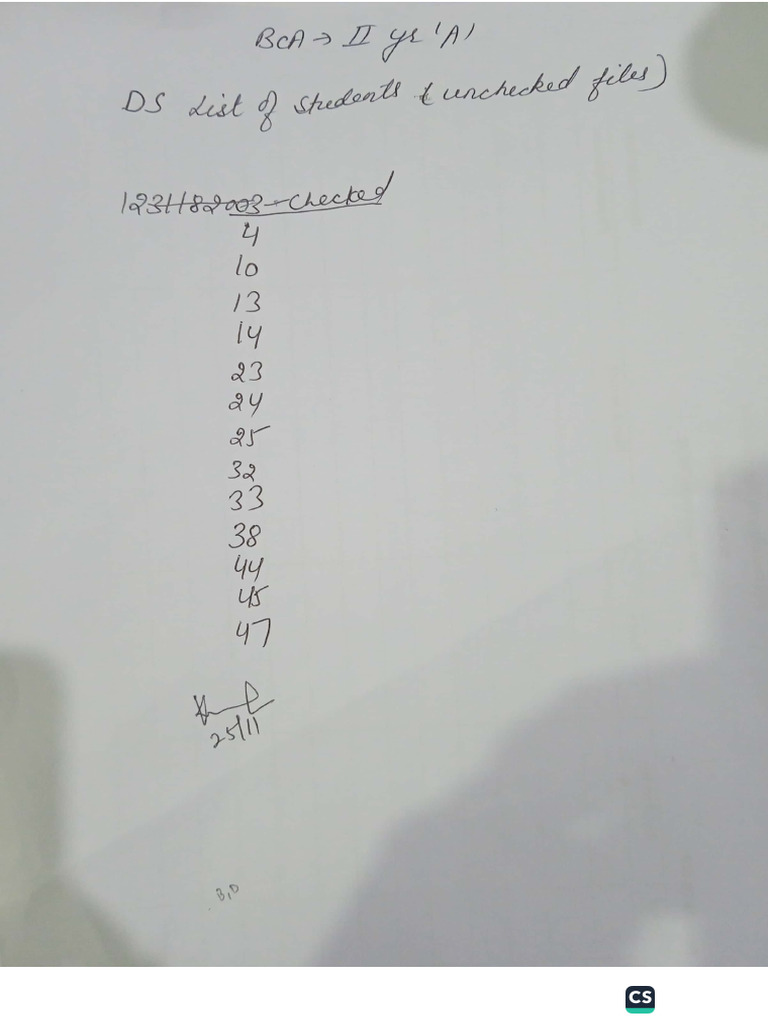 BCA → II yr 'A'
DS List of Students (unchecked files)
1231182003 - Checked
4
10
13
14
23
24
25
32
33
38
44
45
47
25/11
B,D
CS